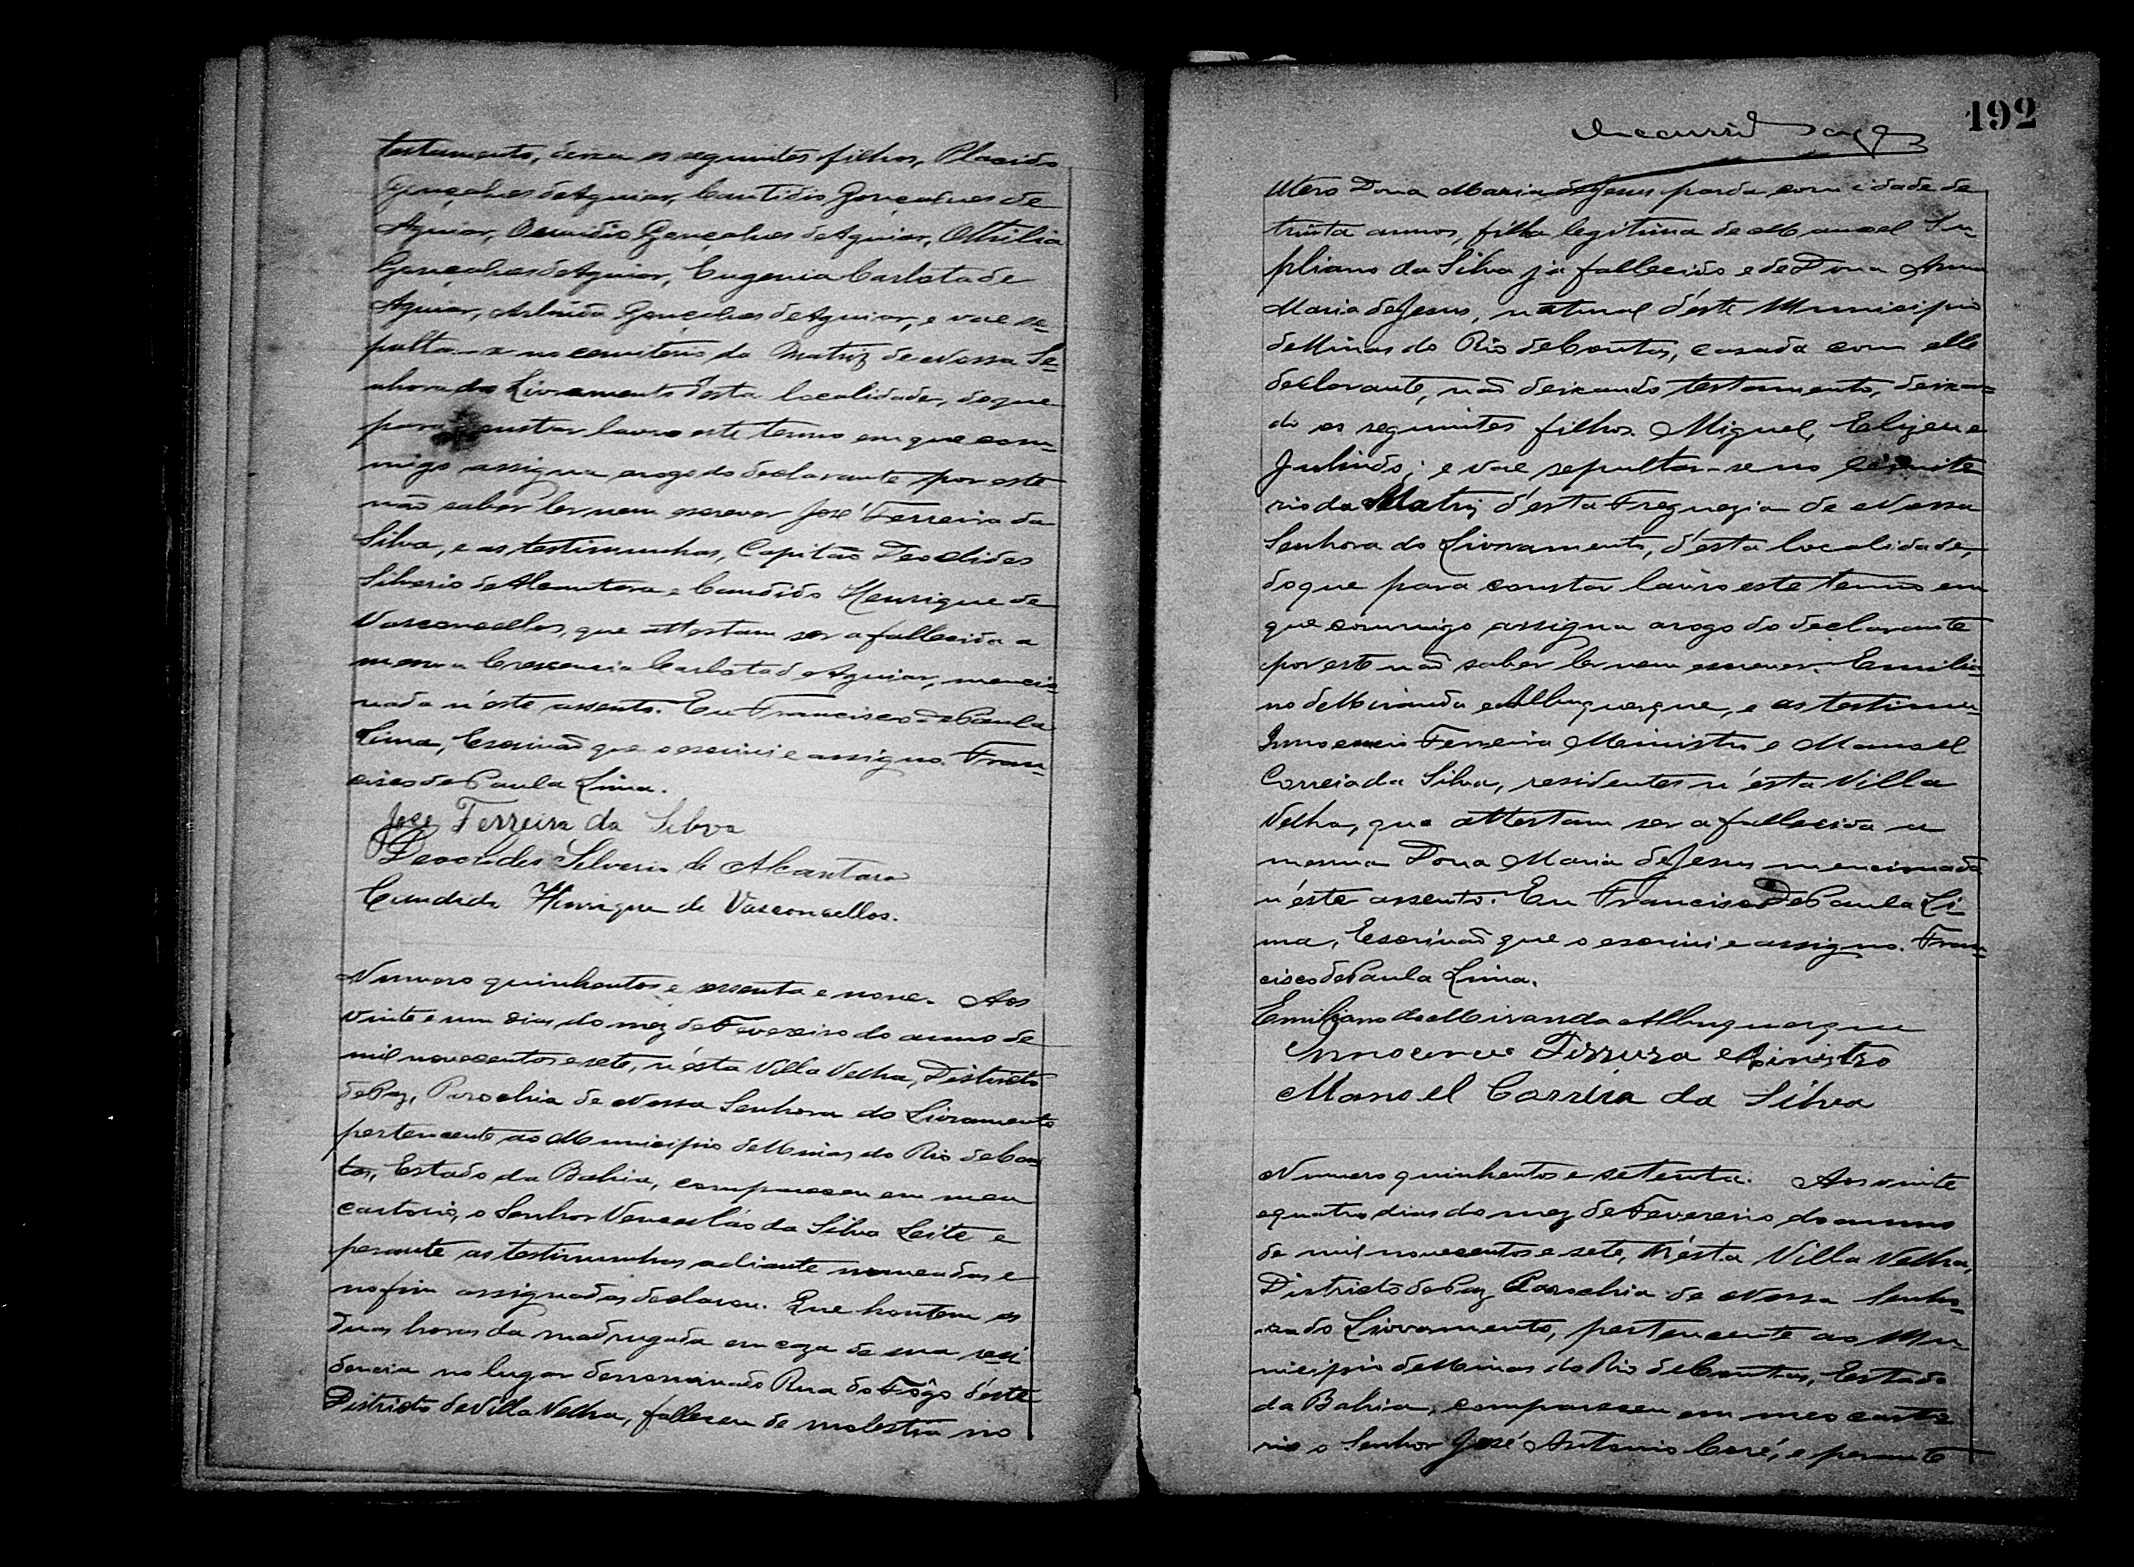 testamento, deixa os seguintes filhos, Placido
Gonçalves de Aguiar, Cantidio Gonçalves de
Aguiar, Gonçalves de Aguiar, Othilia
Gonçalves de Aguiar, Eugenia Carlota de
Aguiar, Gonçalves de Aguiar, e vae se-
pultar-se no cemiterio da Matriz de Nossa Se-
nhora do Livramento d'esta localidade, do que
para constar lavro este termo em que com-
migo assigna arogo do declarante por este
não saber ler nem escrever José Ferreira da
Silva, e as testimunhas, Capitão Deoclides
Silverio de Alcantara e Candido Henrique de
Vasconcellos, que attestam ser a fallecida a
mesma Crescencia Carlota d'Aguiar, mencio-
nada n'éste assento. Eu Francisco de Paula
Lima, Escrivão que o escrivi e assigno. Fran-
cisco de Paula Lima.
José Ferreira da Silva
Deoclides Silverio de Alcantara
Candido Henrique de Vasconcellos.
Numero quinhentos e sessenta e nove. Aos
vinte e um dias do mez de Fevereiro do anno de
mil novecentos e sete, n'ésta Villa Velha, Districto
de Paz, Parochia de Nossa Senhora do Livramento
pertencente ao Municipio de Minas do Rio de Con-
tas, Estado da Bahia, compareceu em meu
cartorio, o Senhor Venceslao da Silva Leite e
perante as testimunhas adiante nomeadas e
no fim assignadas declarou. Que hontem as
duas horas da madrugada em caza de sua resi
dencia no lugar denominado Rua do Fôgo d'éste
Districto de Villa Velha, falleceu de molestia no
192
utero Dona Maria de Jesus parda com idade de
trinta annos, filha legitima de Manoel Su-
pliano da Silva já fallecido e de Dona Anna
Maria de Jesus, natural d'éste Municipio
de Minas do Rio de Contas, casada com elle
declarante, não deixando testamento, deixan-
do os seguintes filhos Miguel, Elizeu e
Julindo; e vae sepultar-se no Cemite
rio da Matriz d'ésta Freguezia de Nossa
Senhora do Livramento, d'ésta localidade,
do que para constar lavro este termo em
que commigo assigna arogo do declarante
por este não saber ler nem escrever Emilia-
no de Miranda e Albuquerque, e as testimu-
Innocencio Ferreira Ministro e Manoel
Correia da Silva, residentes n'ésta Villa
Velha, que attestam ser a fallecida a
mesma Dona Maria de Jesus mencionada
n'éste assento. Eu Francisco de Paula Li-
ma, Escrivão que o escrivi e assigno. Fran-
cisco de Paula Lima.
Emiliano de Miranda Albuquerque
Innocencio Ferreira Ministro
Manoel Correia da Silva
Numero quinhentos e setenta. Aos vinte
e quatro dias do mez de Fevereiro do anno
de mil novecentos e sete, N'ésta Villa Velha,
Districto de Paz Parochia de Nossa Senho-
ra do Livramento, pertencente ao Mu-
nicipio de Minas do Rio de Contas, Estado
da Bahia, compareceu em meo carto
rio o Senhor José Antonio Coré, e perante